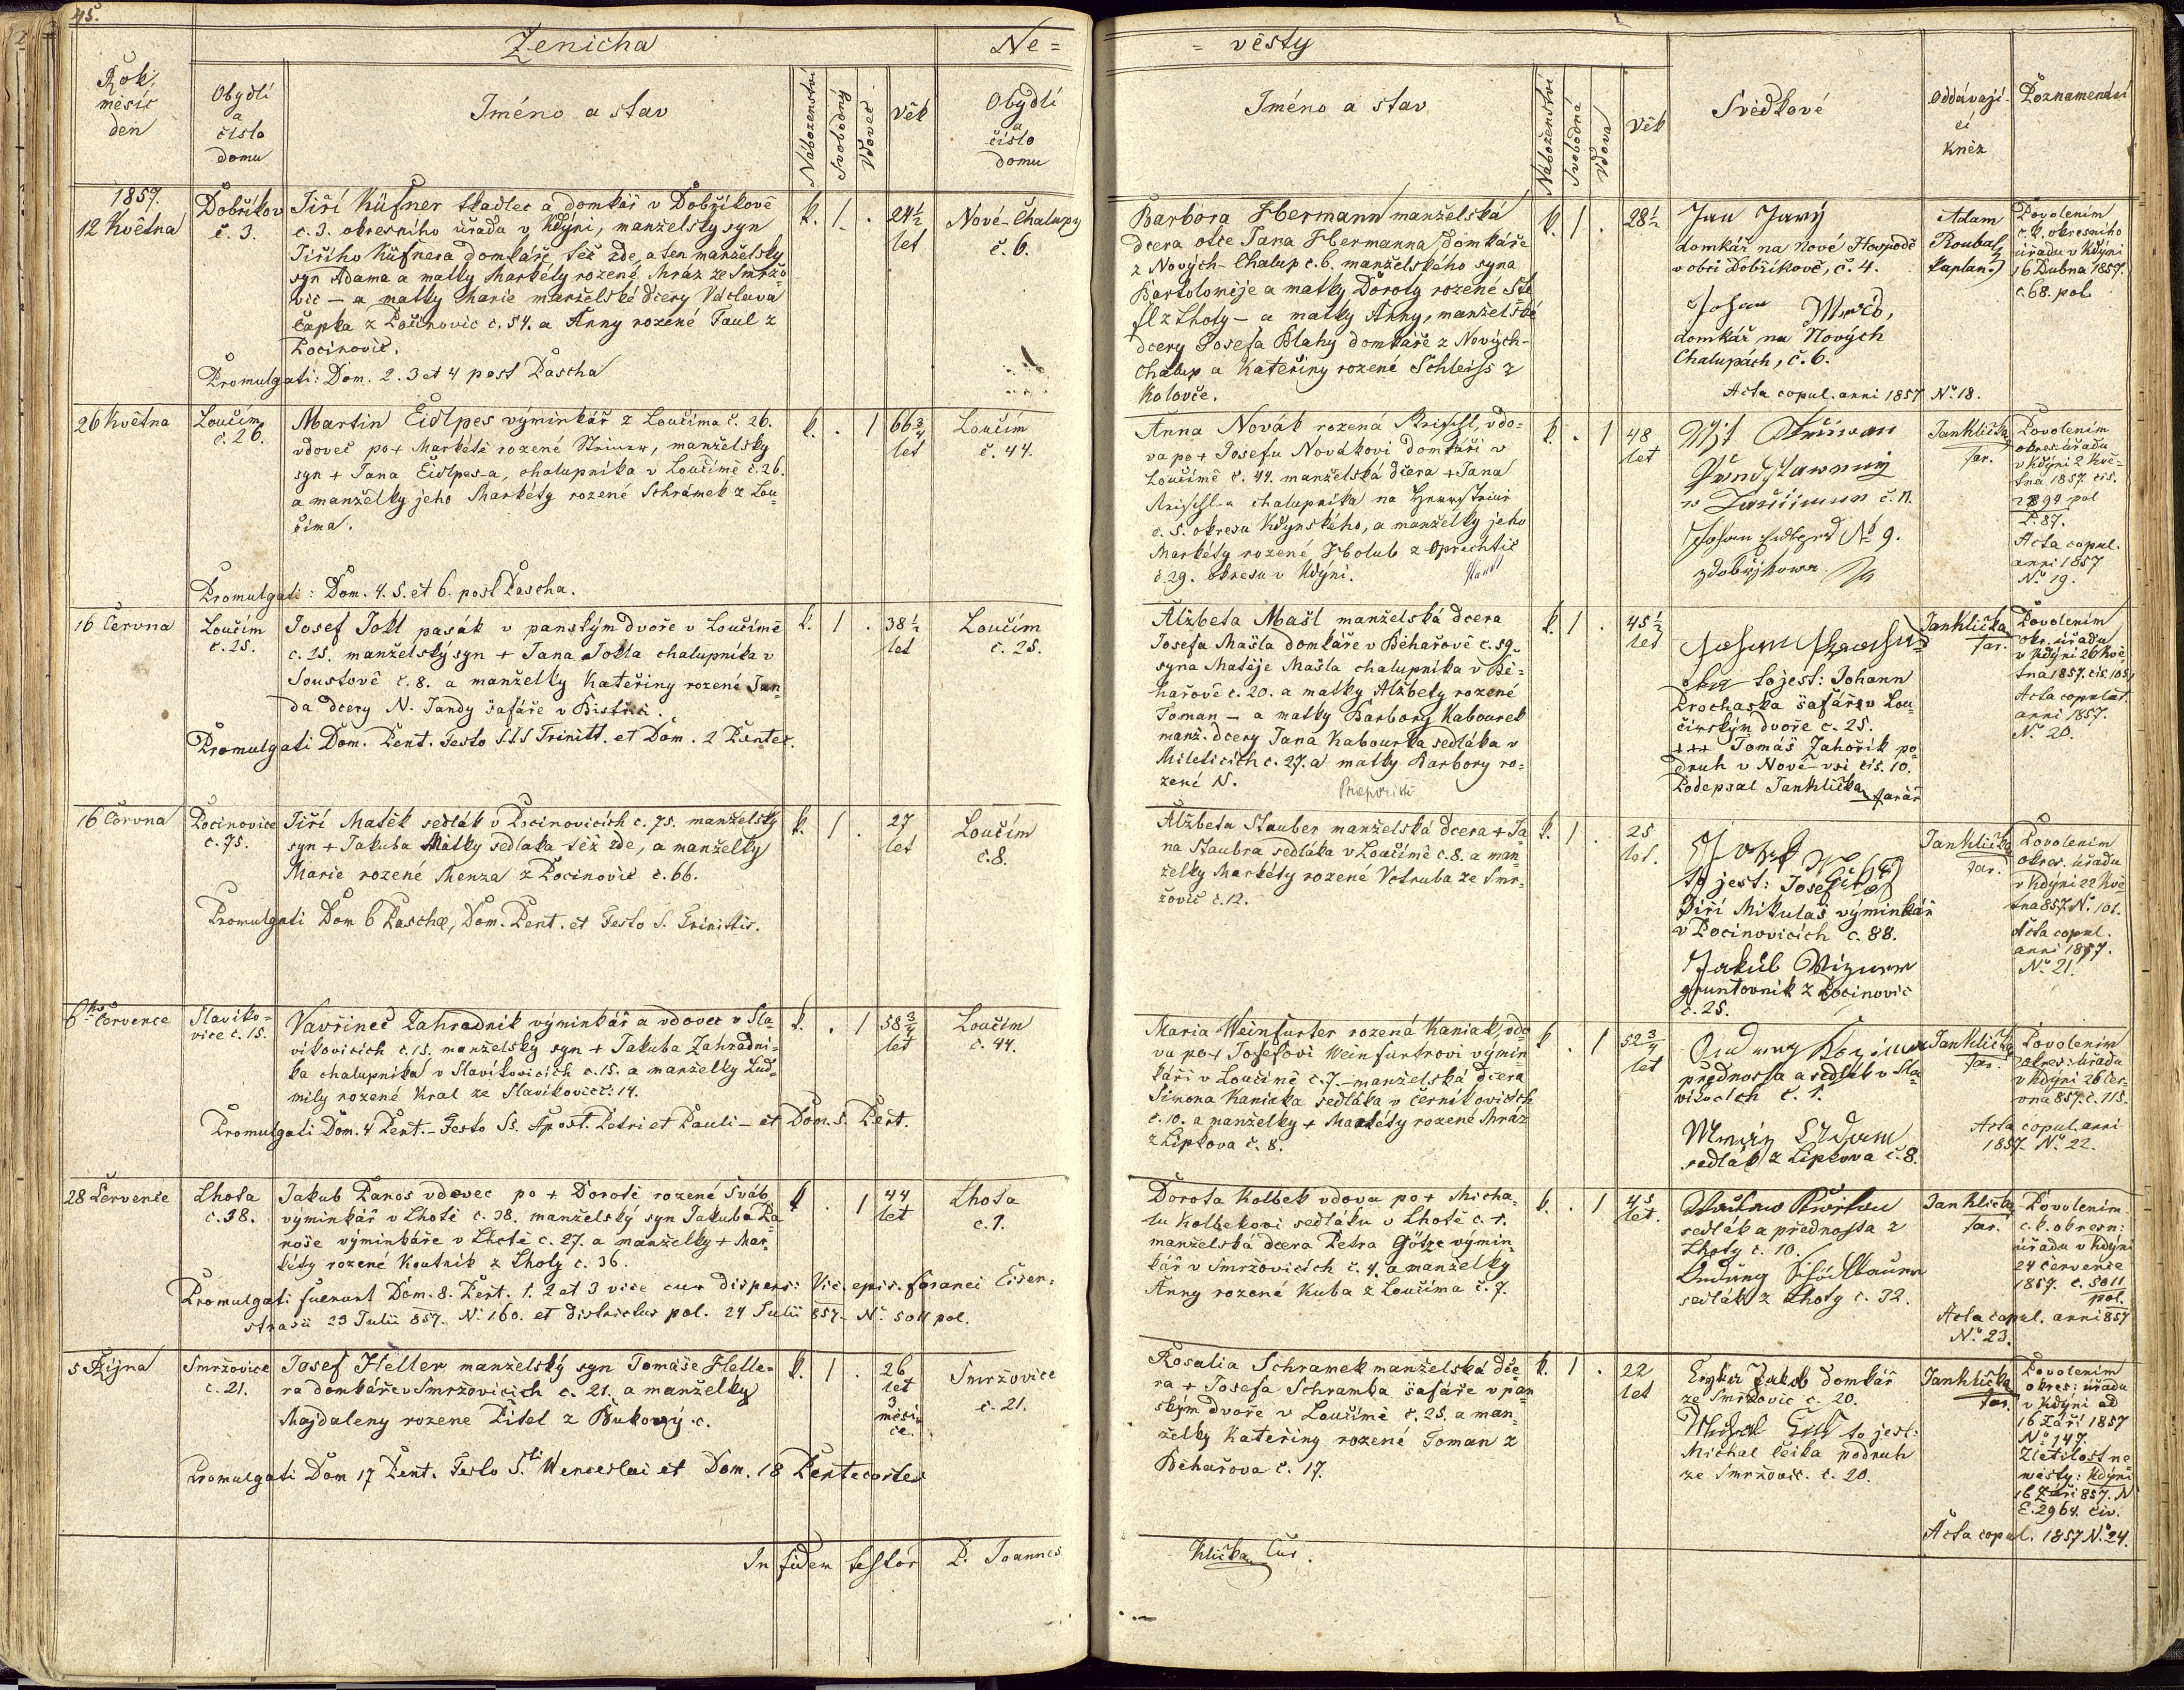 45.
Ženicha
Ne=
= věsty
Rok,
měsíc
den
Obydlí
a
číslo
domu
Jméno a stav
Náboženství
Svobodný
Vdovec
Věk
Obydlí
a
číslo
domu
Jméno a stav
Náboženství
Svobodná
Vdova
Věk
Svědkové
Oddávají-
cí
kněz
Poznamenání
1857.
12 Května
Dobříkov
č. 3.
Jiří Küfner tkadlec a domkář v Dobříkově
č. 3. okresního úřadu v Kdýni, manželský syn
Jiřího Küfnera domkáře též zde, a ten manželský
syn Adama a matky Markéty rozené Mráz ze Smržo=
vic – a matky Marie manželské dcery Václava
Čapka z Pocinovic č. 54. a Anny rozené Taul z
Pocinovic.
Promulgati: Dom. 2. 3 et 4 post Pascha
k. 1 .
24½
let
Nové-Chalupy
č. 6.
Barbora Hbermann manželská
dcera otce Jana Hbermanna domkáře
z Nových-Chalup č. 6. manželského syna
Bartoloměje a matky Doroty rozené
z Lhoty – a matky Anny, manželské
dcery Josefa Blahy domkáře z Nových-
Chalup a Kateřiny rozené Schleiss z
Kolovče.
k. 1 .
28½
Jan Javý
domkář na Nové Hospodě
v obci Dobříkově, č. 4.
Johan
domkář na Nových
Chalupách, č. 6.
Acta copul. anni 1857 No 18.
Adam
Roubal
kaplan
Povolením
c. k. okresního
úřadu v Kdýni
16 Dubna 1857.
č. 68. pol.
26 Května
Loučím
č. 26.
Martin Eidlpes výminkář z Loučíma č. 26.
vdovec po + Markétě rozené, manželský
syn + Jana Eidlpes-a, chalupníka v Loučímě č. 26.
a manželky jeho Markéty rozené Schrámek z Lou=
číma.
Promulgati: Dom. 4. 5. et 6. post Pascha.
k. . 1
66¾
let
Loučím
č. 44.
Anna Novák rozená, vdo=
va po + Josefu Novákovi domkáři v
Loučímě č. 44. manželská dcera + Jana
chalupníka na
č. 5. okresu Kdýnského, a manželky jeho
Markéty rozené Holub z Oprechtic
č. 29. okresu v Kdýni.
k. . 1
48
let
č. 11.
Johan No 9.
z Dobřjkowa
Jan Klička
far.
Povolením
okres. úřadu
v Kdýni 2 Kvě=
tna 1857. čis.
pol
P. 87.
Acta copul.
anni 1857
No 19.
16 Června
Loučím
č. 25.
Josef Jokl pasák v panským dvoře v Loučímě
č. 25. manželský syn + Jana Jokla chalupníka v
Soustově č. 8. a manželky Kateřiny rozené Jan=
da dcery N. Jandy šafáře v
Promulgati Dom. Pent. Festo SSS Trinitt. et Dom. 2 Pentec.
k. 1 .
38½
let
Loučím
č. 25.
Alžbeta Mašl manželská dcera
Josefa Mašla domkáře v Běhařově č. 59.
syna Matěje Mašla chalupníka v Bě=
hařově č. 20. a matky Alžbety rozené
Toman – a matky Barbory Kabourek
manž. dcery Jana Kabourka sedláka v
Mileticích č. 27. a matky Barbory ro=
zené N.
k. 1 .
45½
let
Johan
to jest: Johann
Prochaska šafář v Lou=
čimským dvoře č. 25.
+++ Tomáš Zahořík po=
druh v Nové-vsi čis. 10.
Podepsal Jan Klička farář
Jan Klička
far.
Povolením
okr. úřadu
v Kdýni 26 Kvě=
tna 1857. čis 105
Acta copulat.
anni 1857.
No 20.
16 Června
Pocinovice
č. 75.
Jiří Matěk sedlák v Pocinovicích č. 75. manželský
syn + Jakuba Matky sedláka též zde, a manželky
Marie rozené Menza z Pocinovic č. 66.
Promulgati Dom 6 Paschæ, Dom. Pent. et Festo S. Trinittis.
k. 1 .
27
let
Loučím
č. 8.
Alžbeta Stauber manželská dcera + Ja=
na Staubra sedláka v Loučímě č. 8. a man=
želky Markéty rozené Votruba ze Smr=
žovic č. 12.
k. 1 .
25
let.
Josef
to jest: Josef
Jiří Mikulaš výminkář
v Pocinovicích č. 88.
Jakub
gruntovník z Pocinovic
č. 25.
Jan Klička
far.
Povolením
okres. úřadu
v Kdýni 22 Kvě=
tna 857. No 101.
Acta copul.
anni 1857.
No 21.
6ho Července
Slaviko=
vice č. 15.
Vavřinec Zahradník výminkář a vdovec v Sla=
vikovicích č. 15. manželský syn + Jakuba Zahradní=
ka chalupníka v Slavikovicích č. 15. a manželky Lud=
mily rozené Kral ze Slavikovic č. 14.
Promulgati Dom. 4 Pent. – Festo Ss. Apost. Petri et Pauli – et Dom. 5. Pent.
k. . 1
58¾
let
Loučím
č. 44.
Maria Weinfurter rozená Kaniak, vdo=
va po + Josefovi Weinfurtrovi výmin=
káři v Loučímě č. 7. – manželská dcera
Šimona Kaniaka sedláka v Černíkovicích
č. 10. a manželky + Markéty rozené Mráz
z Lipkova č. 8.
k . 1
52¾
let
přednosta a sedlák v Sla=
vikovicích č. 1.
Adam
sedlák z Lipkova č. 8.
Jan Klička
far.
Povolením
okres. úřadu
v Kdýni 26 Čer=
vna 857. č. 115.
Acta copul. anni
1857. No 22.
28 Července
Lhota
č. 38.
Jakub Panos vdovec po + Dorotě rozené Šváb
výminkář v Lhotě č. 38. manželský syn Jakuba Pa=
noše výminkáře v Lhotě č. 27. a manželky + Mar=
kéty rozené Koutník z Lhoty č. 36.
Promulgati fuerunt Dom. 8. Pent. 1. 2 et 3 vice cum dispens: Vic. epis. foranei Eisen=
strasii 23 Julii 857. No 160. et districtus pol. 24 Julii 857. No 5011 pol.
k . 1
44
let
Lhota
č. 1.
Dorota Kolbek vdova po + Micha=
lu Kolbekovi sedláku v Lhotě č. 1.
manželská dcera Petra Götze výmin=
kář v Smržovicích č. 4. a manželky
Anny rozené Kuba z Loučíma č. 7.
k. . 1
45
let.
sedlák a přednosta z
Lhoty č. 10.
sedlák z Lhoty č. 32.
Jan Klička
far.
Povolením
c. k. okresn:
úřadu v Kdýni
24 července
1857. č. 5011
pol.
Acta copul. anni 857
No 23.
5 Října
Smržovice
č. 21.
Josef Heller manželský syn Tomáše Helle=
ra domkáře v Smržovicích č. 21. a manželky
Majdaleny rozene Pitel z č.
Promulgati Dom 17 Pent. Festo S.ti Wenceslai et Dom. 18 Pentecostes
k. 1 .
26
let
3
měsí=
ce.
Smržovice
č. 21.
Rosalia Schramek manželská dce=
ra + Josefa Schramka šafáře v pan=
ským dvoře v Loučímě č. 25. a man=
želky Kateřiny rozené Toman z
Běhařova č. 17.
k. 1 .
22
let
Jakob domkář
ze Smržovic č. 20.
to jest:
Michal Čeika podruh
ze Smržovic. č. 20.
Jan Klička
far.
Povolením
okres: úřadu
v Kdýni ad
16 Září 1857
No 147.
Zletilost ne=
wěsty: Kdýni
16 Září 857. N
E. 2964. civ.
Acta copul. 1857 No 24.
In fidem testor P. Joannes
Klička Cur.